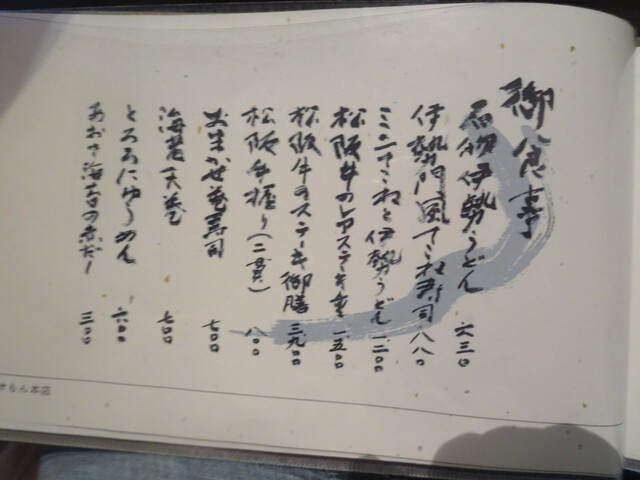 御食事
名物伊勢うどん 六三〇
伊勢門風てこね寿司 八八〇
ミニてこねと伊勢うどん 一二〇〇
松阪牛のレアステーキ重 一五〇〇
松阪牛のステーキ御膳 三九〇〇
松阪牛握り(二貫) 八〇〇
おまかせ巻寿司 七〇〇
海老天巻 七〇〇
とろろにゅうめん 六〇〇
あおさ海苔の赤だし 三〇〇
もん本店